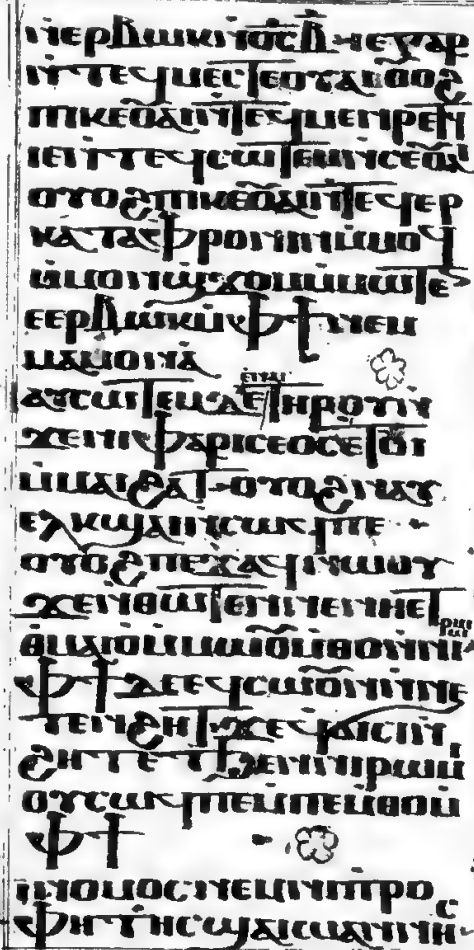 ⲛ̀ⲉⲣⲃⲱⲕ ⲛ̀ⲟ̅ⲥ̅ ⲃ̅ ⲓⲉ ⲅⲁⲣ
ⲛ̀ⲧⲉϥⲙⲉⲥⲧⲉ ⲟⲩⲁⲓ ⲟⲩⲟϩ
ⲡⲓⲕⲉⲟⲩⲁⲓ ⲛ̀ⲧⲉϥⲙⲉⲛⲣⲓⲧϥ
ⲓⲉ ⲛ̀ⲧⲉϥⲥⲱⲧⲉⲙ ⲛ̀ⲥⲉ ⲟⲩⲁⲓ
ⲟⲩⲟϩ ⲡⲓⲕⲉⲟⲩⲁⲓ ⲛ̀ⲧⲉϥⲉⲣ
ⲕⲁⲧⲁⲫⲣⲟⲛⲓⲛ ⲙ̀ⲙⲟϥ
ⲙ̀ⲙⲟⲛ ϣϫⲟⲙ ⲙ̀ⲙⲱⲧⲉⲛ
ⲉⲉⲣⲃⲱⲕ ⲙ̀ⲫϯ ⲛⲉⲙ
ⲙⲁⲙⲟⲛⲁ
ⲁⲩⲥⲱⲧⲉⲙ ⲇⲉ ⲉ̀ⲛⲁⲓ ⲧⲏⲣⲟⲩ ⲛ̀
ϫⲉ ⲛⲓⲫⲁⲣⲓⲥⲉⲟⲥ ⲉⲧⲟⲓ
ⲙ̀ⲙⲁⲓϩⲁⲧ ⲟⲩⲟϩ ⲛⲁⲩ
ⲉⲗⲕϣⲁⲓ ⲛ̀ⲥⲱϥ ⲡⲉ
ⲟⲩⲟϩ ⲡⲉϫⲁϥ ⲛ̀ⲱⲟⲩ
ϫⲉ ⲛ̀ⲑⲱⲧⲉⲛ ⲡⲉ ⲛⲏⲉⲧ
ⲑⲙⲁⲓⲟ ⲙ̀ⲙⲱⲟⲩ ⲙ̀ⲑⲟ ⲛ̀ⲛⲓⲣⲱⲙⲓ
ⲫϯ ⲇⲉ ⲉϥⲥⲱⲟⲩⲛ ⲛ̀ⲛⲉ
ⲧⲉⲛϩⲏⲧ ϫⲉ ϥϭⲓⲥⲓ ⲛ̀
ϩⲏⲧ ⲉⲧϧⲉⲛ ⲛⲓⲣⲱⲙⲓ
ⲟⲩⲥⲱϥ ⲡⲉ ⲙ̀ⲡⲉⲙ̀ⲑⲟ ⲙ̀
ⲫϯ
ⲡⲓⲛⲟⲙⲟⲥ ⲛⲉⲙ ⲛⲓⲡⲣⲟ
ⲫⲏⲧⲏⲥ ϣⲁ ⲓⲱⲁⲛⲛⲏⲥ